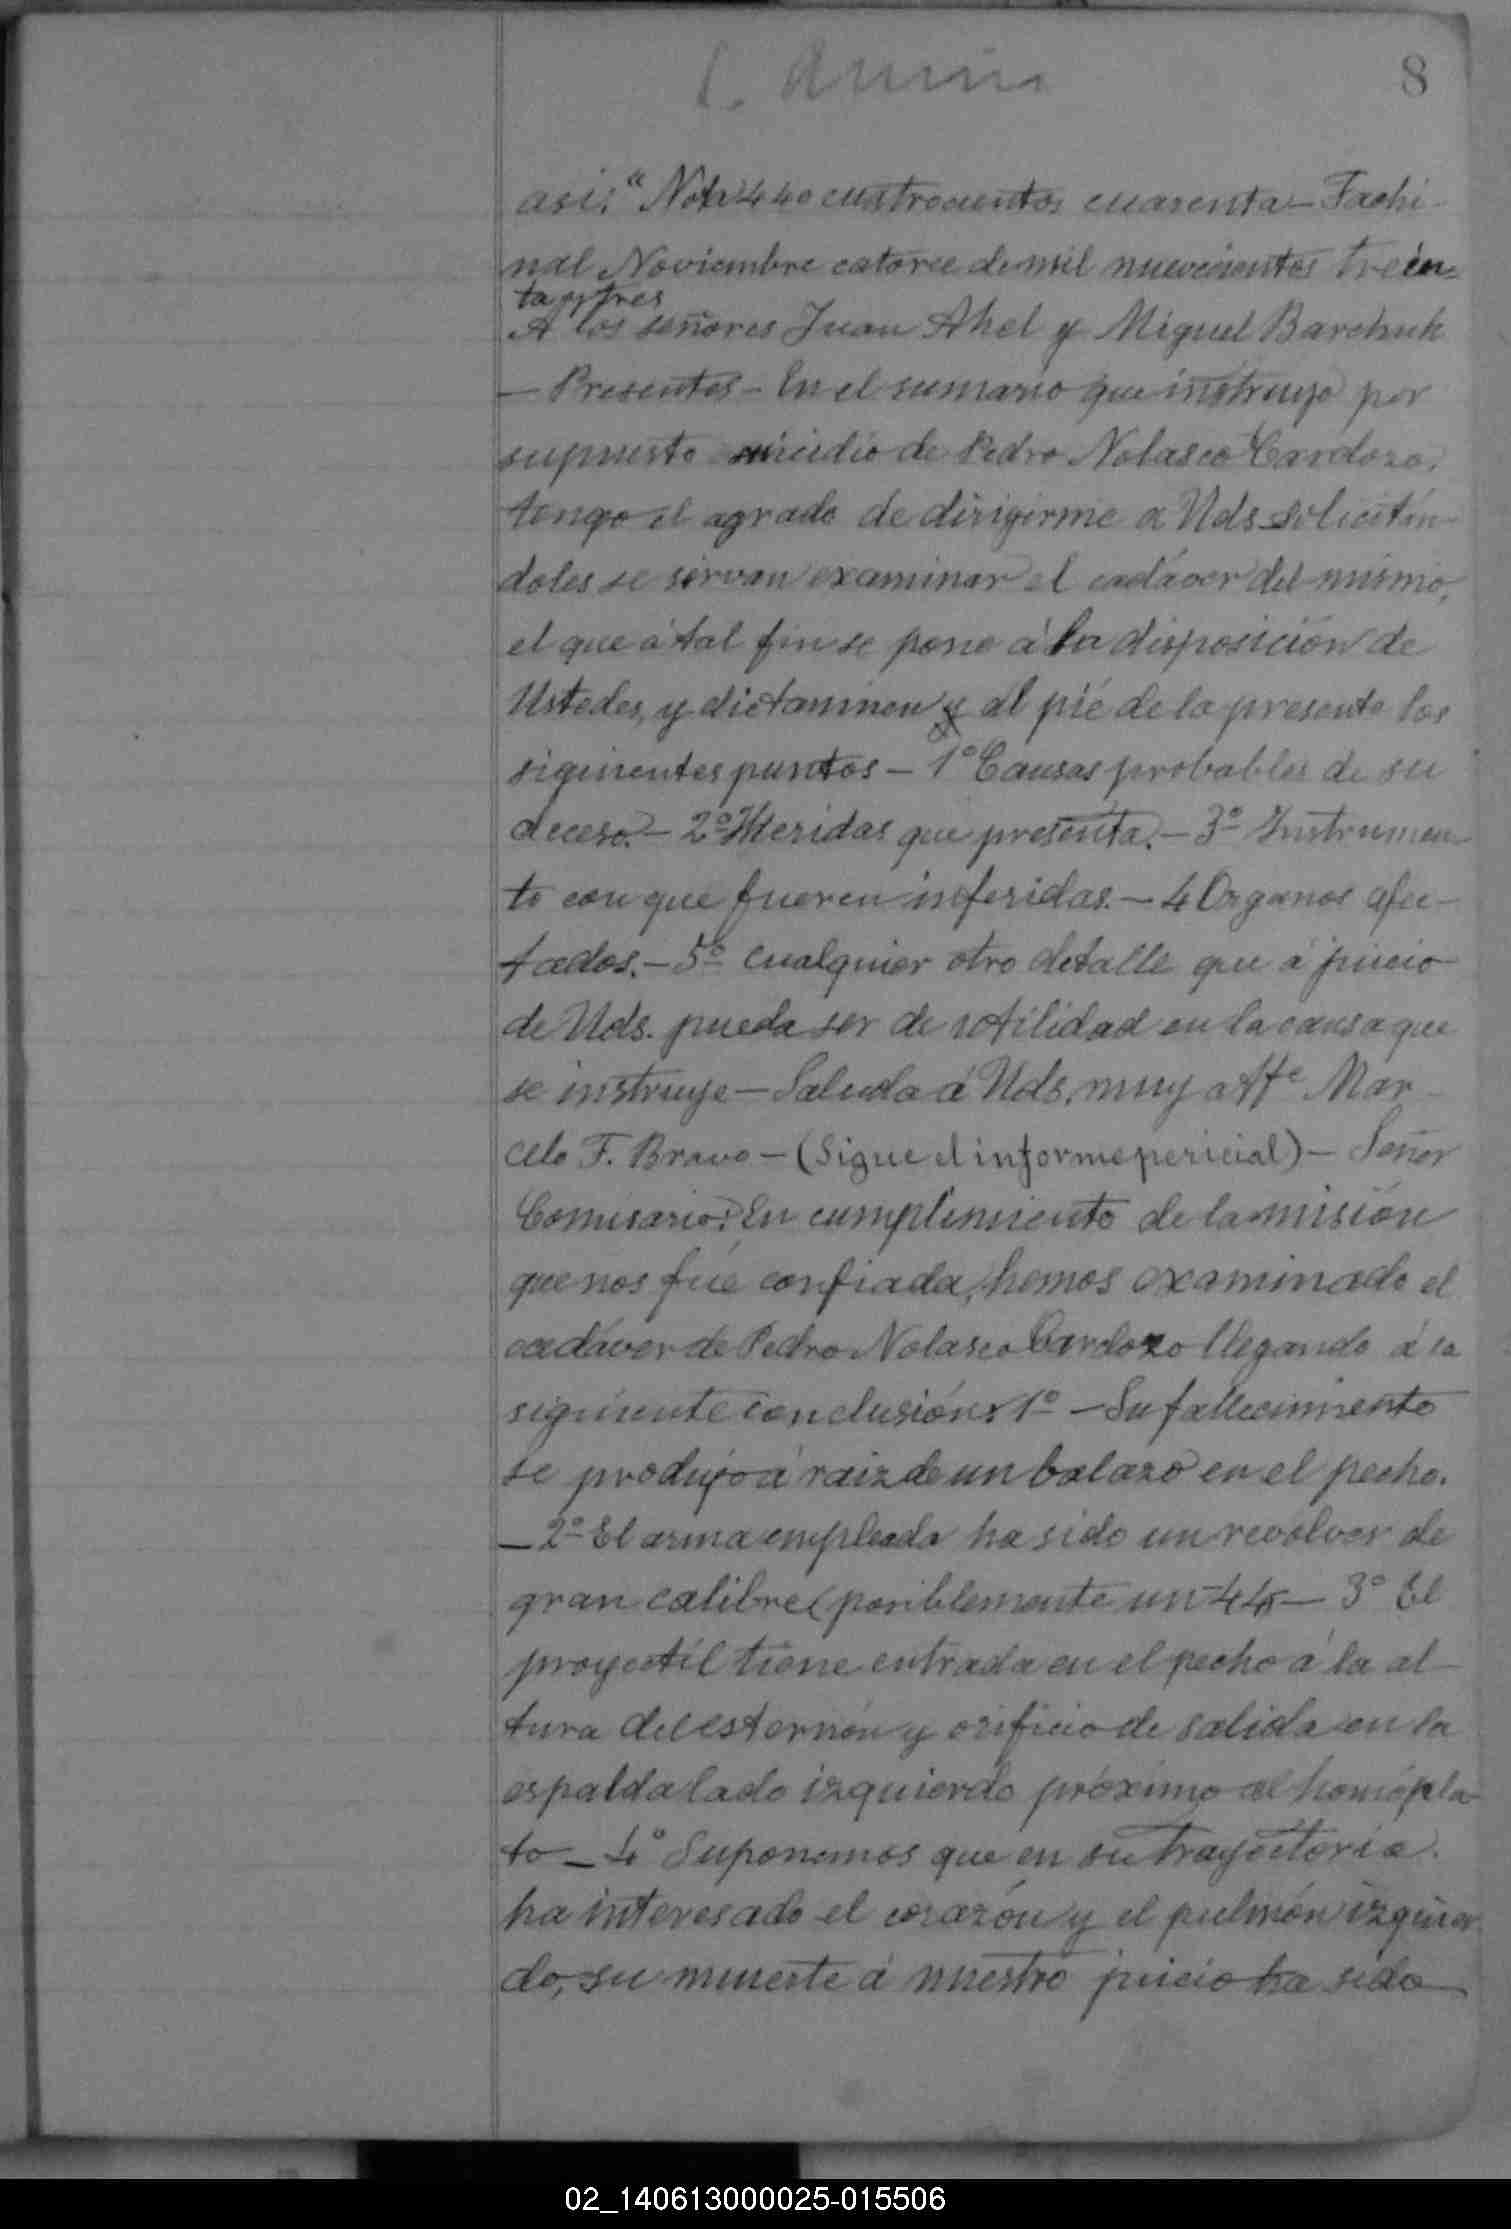 8
asi: "Nota 440 cuatrocientos cuarenta - Fachi-
nal Noviembre catorce de mil nuevecientos trein=
ta y tres
A los señores Juan Ahel y Miguel Barchuk
- Presentes - En el sumario que instruyo por
supuesto suicidio de Pedro Nolasco Cardozo,
tengo el agrado de dirigirme a Uds solicitán-
doles se sirvan examinar el cadáver del mismo,
el que á tal fin se pone á la disposición de
Ustedes, y dictaminen y al pié de la presente los
siguientes puntos - 1º Causas probables de su
deceso. - 2º Heridas que presenta. - 3º Instrumen-
to con que fueren inferidas. - 4 Organos afec-
tados. - 5º cualquier otro detalle que á juicio
de Uds. pueda ser de utilidad en la causa que
se instruye - Saluda á Uds. muy atte Mar-
celo F. Bravo - (Sigue el informe pericial) - Señor
Comisario: En cumplimiento de la misión
que nos fué confiada, hemos examinado el
cadáver de Pedro Nolasco Cardozo llegando á la
siguiente conclusión: 1º - Su fallecimiento
se produjo á raiz de un balazo en el pecho.
- 2º El arma empleada ha sido un revolver de
gran calibre (posiblemente un 44 - 3º El
proyectil tiene entrada en el pecho á la al-
tura del esternón y orificio de salida en la
espalda lado izquierdo próximo al homópla-
to - 4º Suponemos que en su trayectoria
ha interesado el corazón y el pulmón izquier-
do, su muerte á nuestro juicio ha sido
02_140613000025-015506